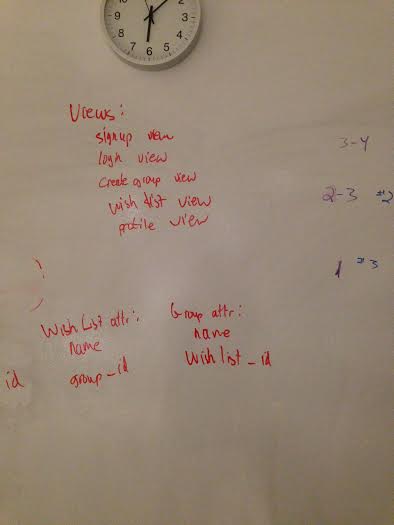 10
2
9
3
8
4
7
6
5
Views:
signup view
login view
create group view
wish list view
profile view
3-4
2-3 #2
1 #3
Wish List attr:
name
group_id
Group attr:
name
Wish list_id
id